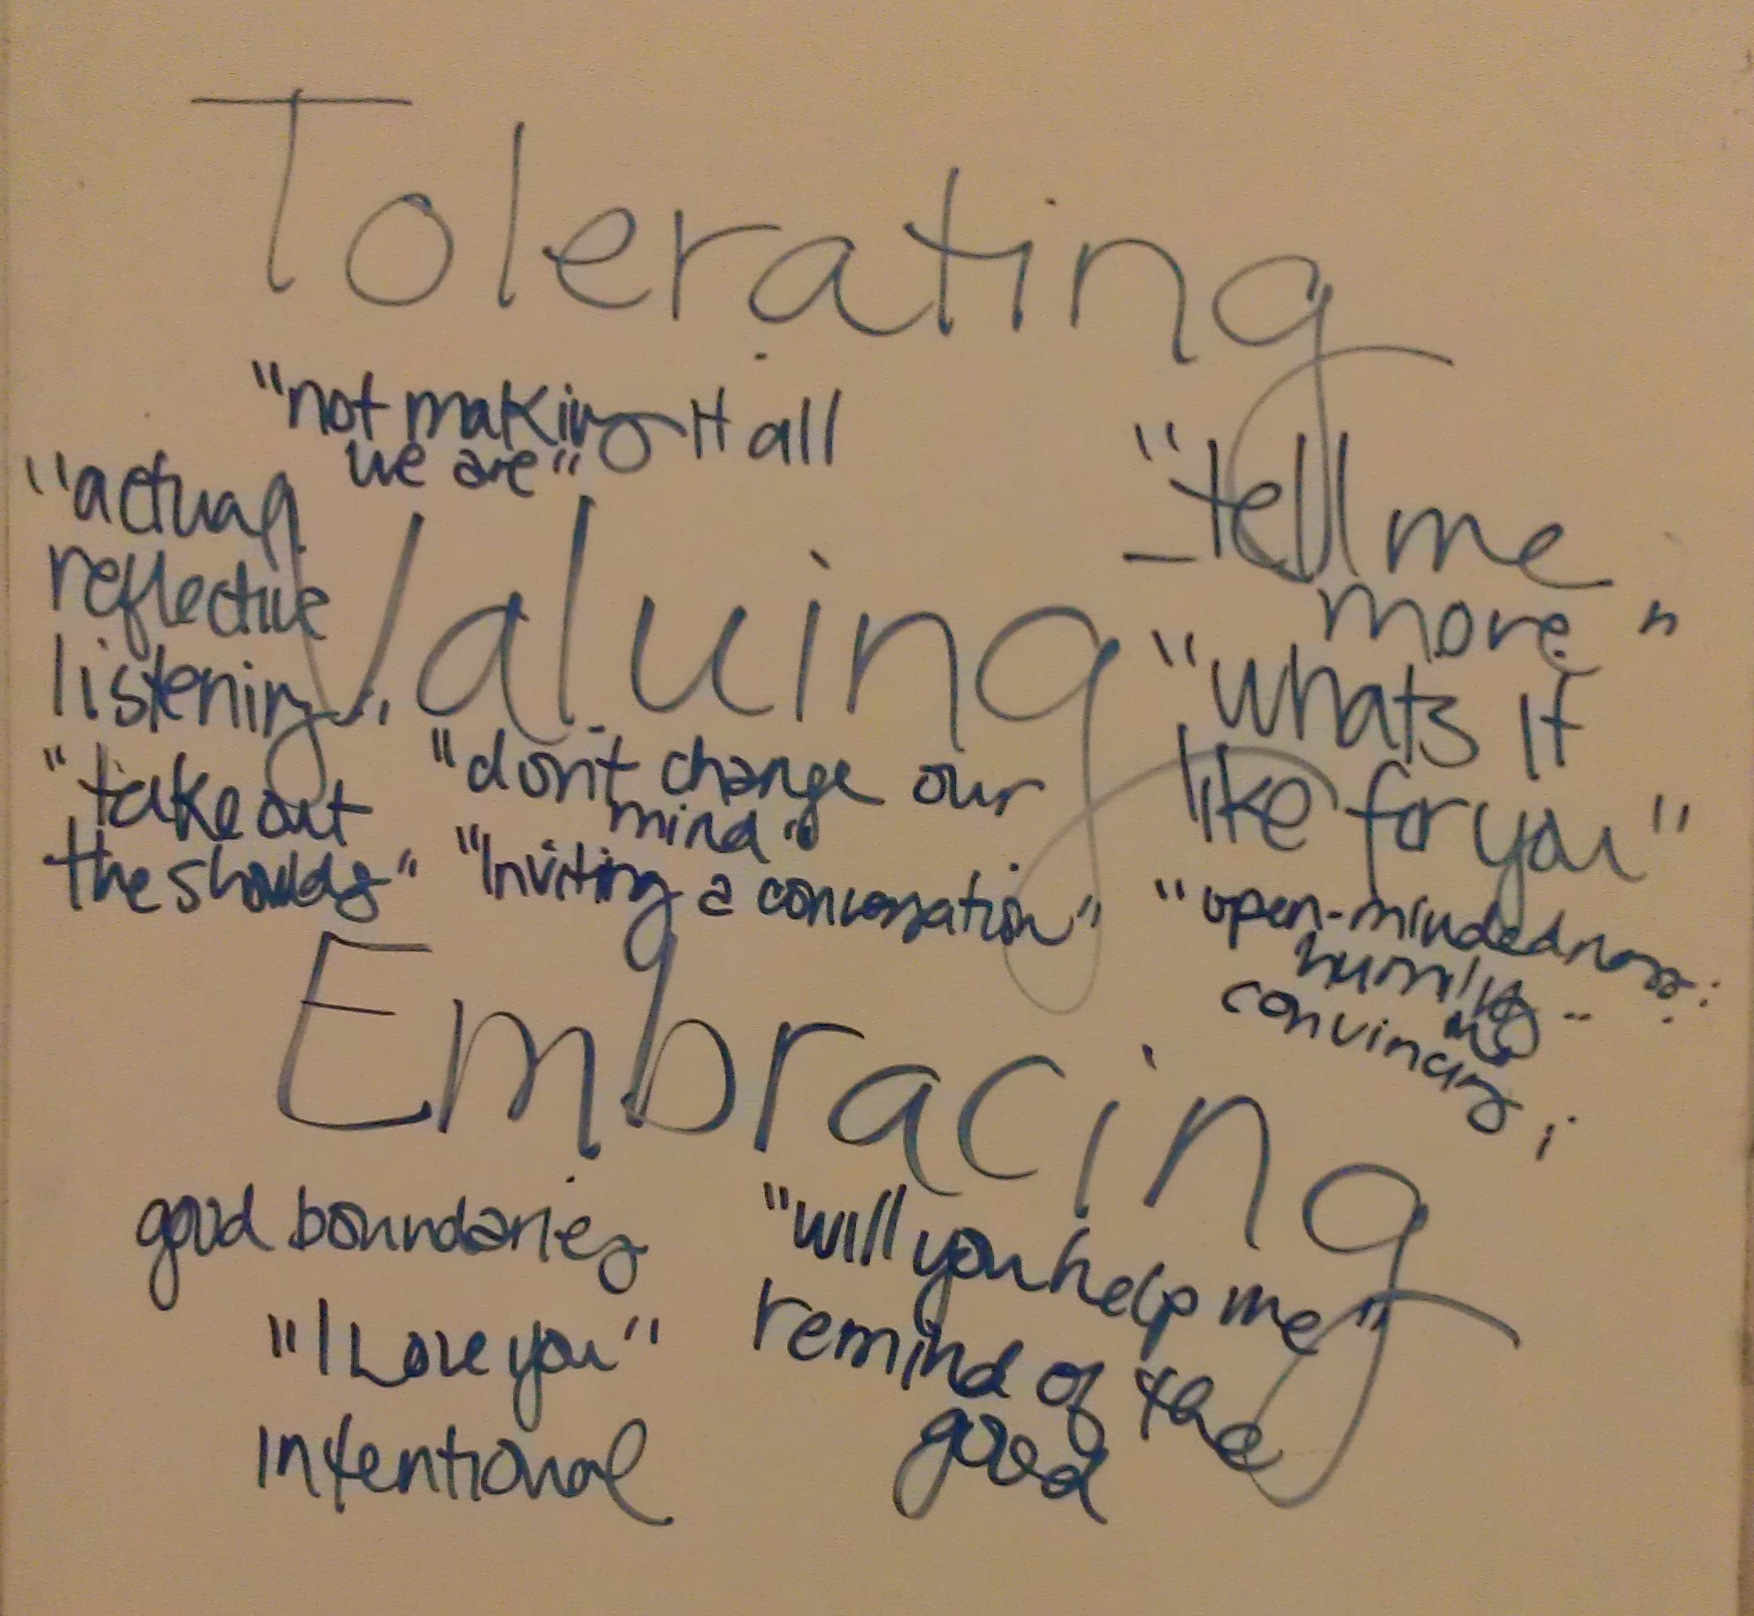 Tolerating
"not making it all
we are"
"actual
reflective
listening"
"tell me
more"
Valuing
"whats it
like for you"
"take out
the shoulds"
"don't change our
mind"
"Inviting a conversation"
"open-mindedness"
humility
no
convincing
Embracing
good boundaries
"I Love you"
Intentional
"will you help me"
remind of the
good